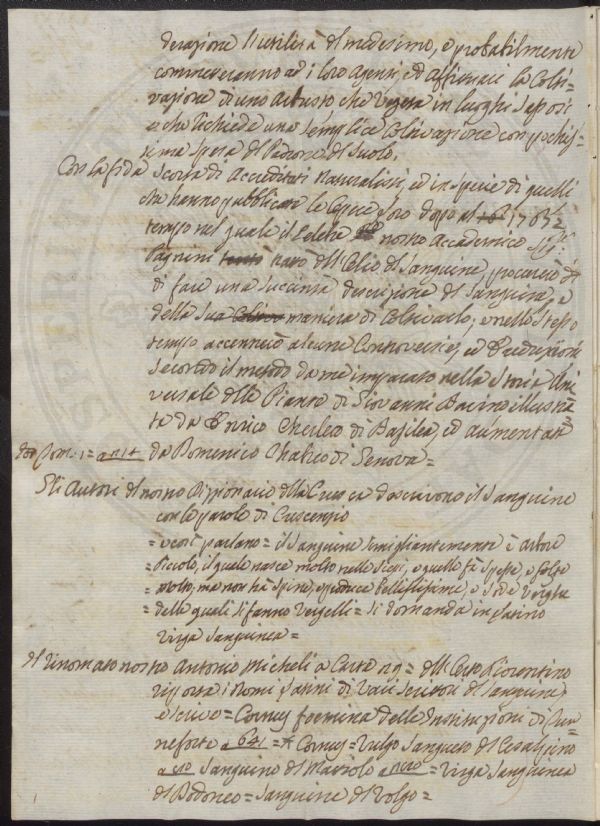 derazione l'utilità del medesimo, e probabilmente
commetteranno ad i loro Agenti, ed Affittuari la Colti=
vazione di uno Arbusto che vegeta in luoghi
e che richiede una semplice Coltivazione con pochis=
sima spesa di Padrone di Suolo.
Con la fida scorta di Accreditati Naturalisti, ed in specie di quelli
che hanno pubblicare le Opere loro dopo il 1765
tempo nel quale il Celebre nostro Accademico Sig.r
Pagnini trattò dell'Olio di Sanguine, procurerò
di fare una succinta descrizione del Sanguine, e
della sua maniera di Coltivarlo, e nello stesso
tempo accennerò alcune Controversie, ed Erudizioni
secondo il metodo da me imparato nella Storia Uni=
versale delle Piante di Giovanni Bavino illustra=
ta da Enrico Cherleo di Basilea, ed aumentata
Tom. 1 = a n 14 da Domenico Chabreo di Genova =
Gli Autori del nostro Dizionario della Crusca descrivono il Sanguine
con le parole di Crescenzio
= e così parlano = il Sanguine simigliantemente è Arbore
= Piccolo, il quale nasce molto nelle siepi, e quelle fà spesse, e folte
= molto, ma non hà spine, e produce bellissime, e sode Verghe
= delle quali si fanno Vergelli = si domanda in Latino
Virga Sanguinea =
Il rinomato nostro Antonio Micheli a Carte n 9 = dell'Orto Fiorentino
riporta i Nomi Latini di varj Scrittori del Sanguine,
e scrive = Cornus foemina delle Instituzioni di Tur=
neforte a 641 = Cornus = Vulgo Sangueto del Cesalpino
a 110 Sanguino del Mattiolo = Virga Sanguinea
di Dodoneo = Sanguine del Volgo =